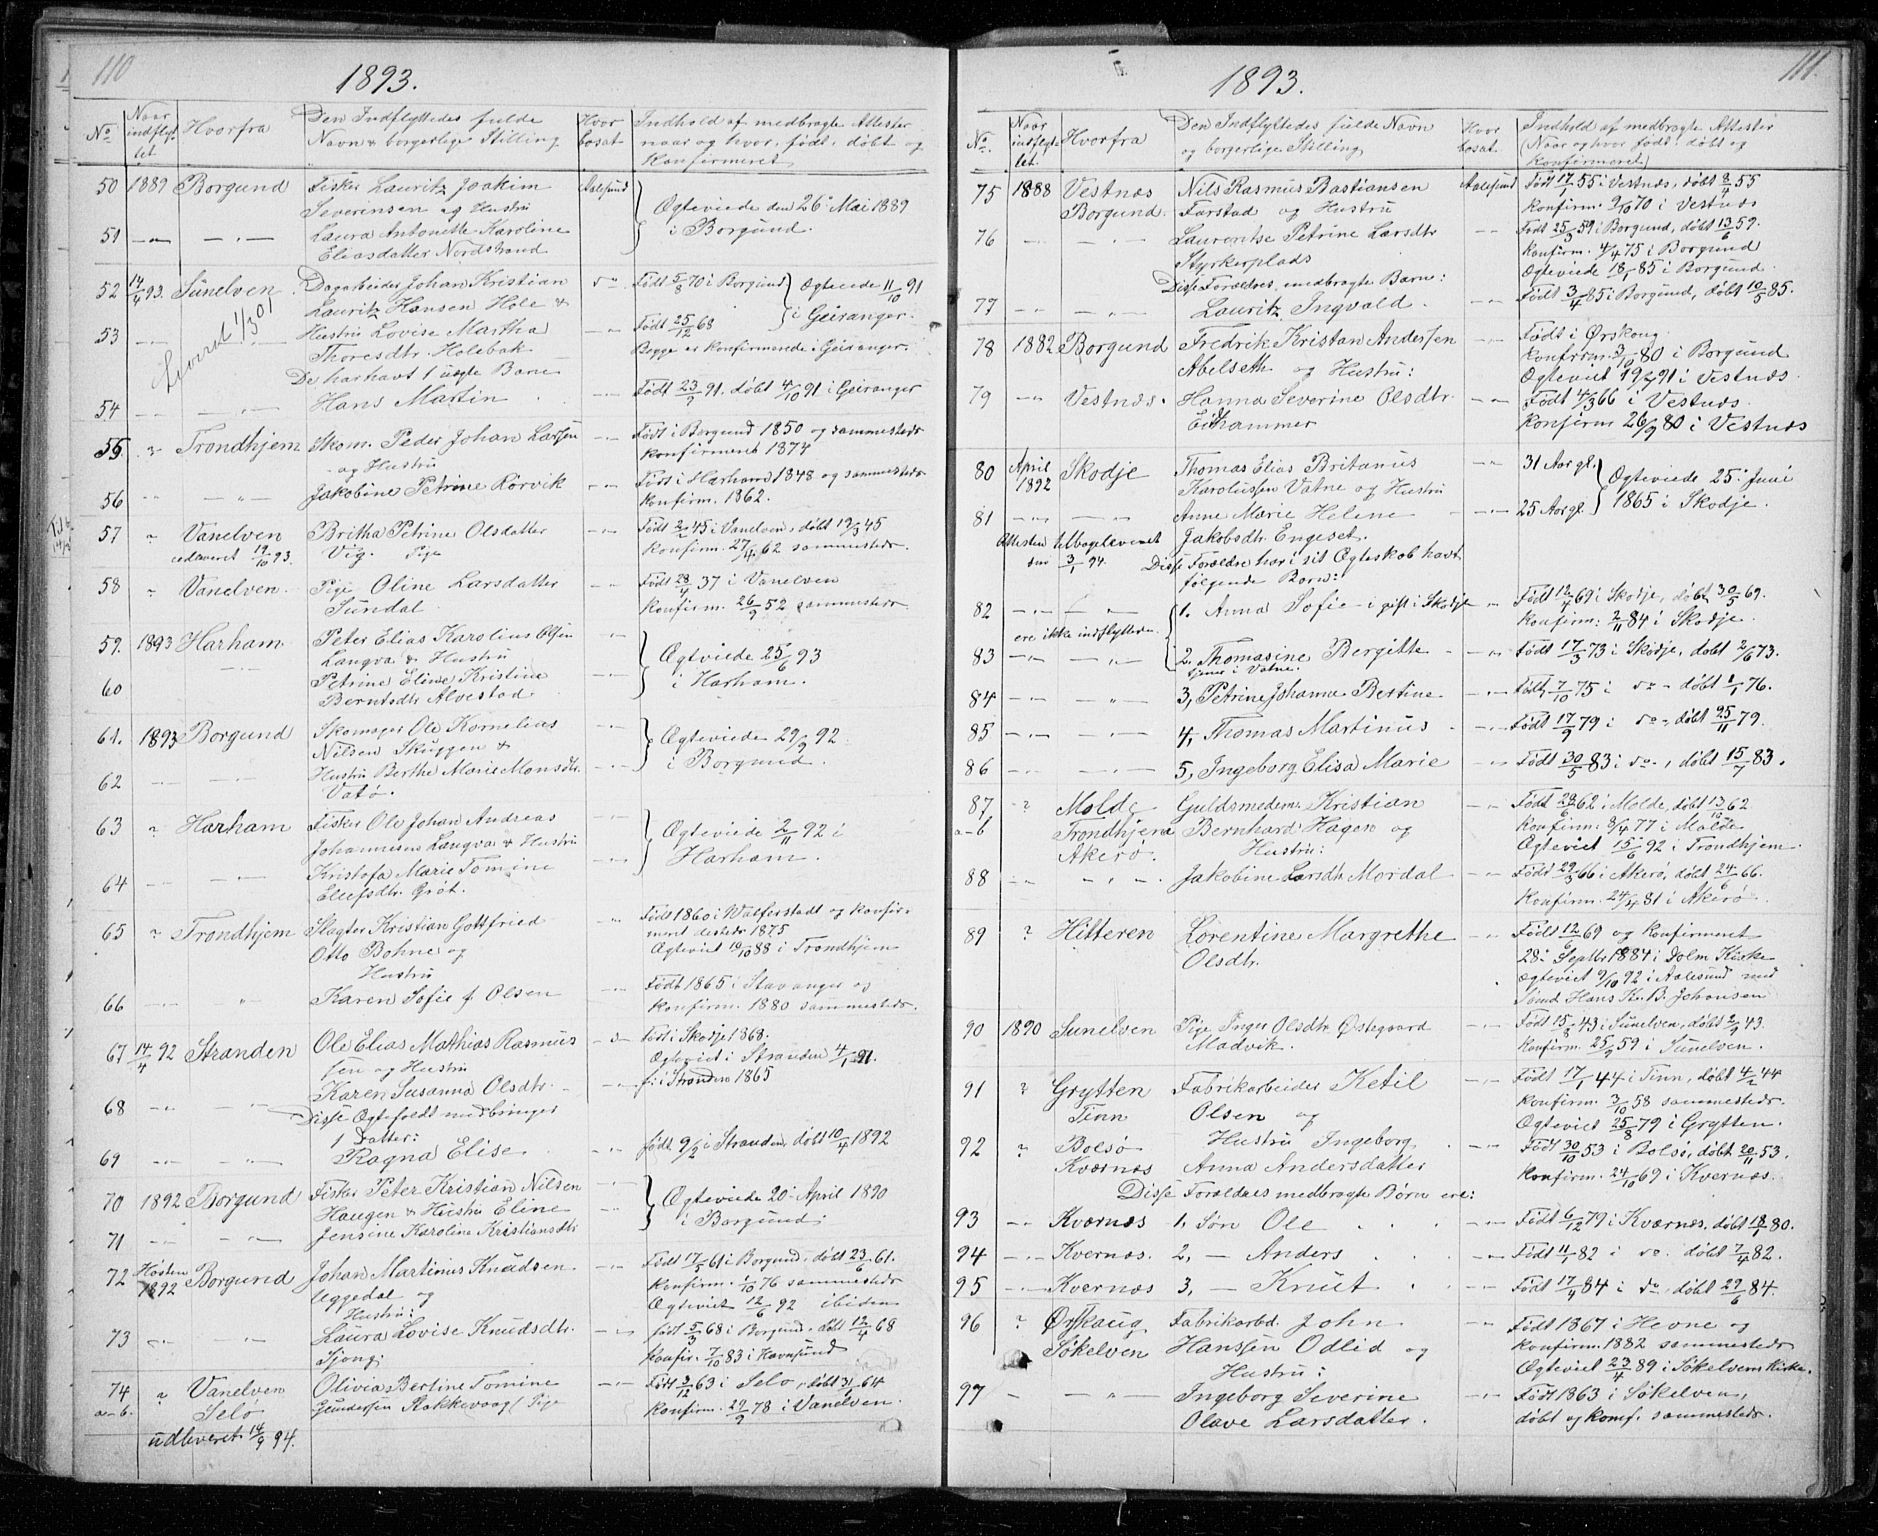 110
1893.
No
Naar indflyt-tet
Hvorfra
Den Indflyttedes fulde Navn & borgerlige Stilling
Hvor bosat
Indhold af medbragte Attester naar og hvor født, døbt og Konfirmeret
50 1889 Borgund Fisker Lauritz Joakim Aalesund
Severinsen og Hustru Ægteviede den 26. Mai 1889
51 Laura Antonette Karoline i Borgund.
Eliasdatter Nordstrand
52 14/4 93. Sunelven Dagarbeider Johan Kristian Født 5/8 70 i Borgund Ægteviede 11/10 91
Lauritz Hansen Hole & i Geiranger.
53 Hustru Lovise Martha Født 25/12 68
Thoresdtr. Holebak Begge er konfirmerede i Geiranger.
De har havt 1 uægte Barn
54 Hans Martin Født 23/9 91. døbt 4/10 91 i Geiranger
55. Trondhjem Skom. Peder Johan Larsen Født i Borgund 1850 og sammesteds
og Hustru konfirmeret 1874
56 Jakobine Petrine Rørvik Født i Harham 1848 og sammesteds
Konfirm. 1862.
57 Vanelven Britha Petrine Olsdatter Født 2/2 45 i Vanelven, døbt 12/3 45
19/10 93. Vig. Pige Konfirm. 27/4 62 sammesteds.
58 Vanelven. Pige Oline Larsdatter Født 28/4 37 i Vanelven
Sundal. Konfirm. 26/9 52 sammesteds
59. 1893 Harham Peter Elias Karolius Olsen
Langva & Hustru Ægteviede 25/6 93
60 Petrine Eline Kristine i Harham.
Berntsdtr. Alvestad
61. 1893 Borgund Skomager Ole Kornelius
Nilsen Skuggen & Ægteviede 29/9 92.
62 Hustru Berthe Marie Monsdtr. i Borgund.
Vatø.
63 Harham Fisker Ole Johan Andreas
Johannesens Langva & Hustru Ægteviede 2/11 92 i
64 Kristofa Marie Tomine Harham.
Eliefsdtr. Grøt.
65 Trondhjem Slagter Kristian Gottfried Født 1860 i Walferstadt og Konfir-
Otto Bohne og meret desteds 1875
Hustru Ægteviet 19/10 88 i Trondhjem
66 Karen Sofie f. Olsen Født 1865 i Stavanger og
Konfirm. 1880 sammesteds.
67 14/4 92 Stranden Ole Elias Mathias Rasmus- Født i Skodje 1868.
sen og Hustru Ægteviet i Stranden 4/1 91.
Karen Susanna Olsdtr. f. i Stranden 1865
68 Disse Ægtefolk medbringer
1 Datter:
69 Ragna Elise født 9/2 i Stranden, døbt 10/4 1892
70 1892 Borgund Fisker Peter Kristian Nilsen
Haugen & Hustru Eline Ægteviede 20. April 1890
71 Jensine Karoline Kristiansdtr i Borgund.
72 Høsten 1892 Borgund Johan Martinus Knudsen Født 17/5 61 i Borgund, døbt 23/6 61.
Uggedal og Konfirm. 1/10 76 sammesteds
Hustru: Ægteviet 12/6 92 ibidem
73 Laura Lovise Knudsdtr. født 5/3 68 i Borgund. døbt 12/4 68
Konfir. 7/10 83 i Havnsund
74 Vanelven Olivia Bertine Tomine Født 3/12 63 i Selø, døbt 3/1 64
a-b. Selø Gundersen Rakkevaag Pige Konfirm. 29/9 78 i Vanelven.
udleveret 14/9 94.
111.
1893.
No.
Naar indflyt-tet.
Hvorfra
Den Indflyttedes fulde Navn og borgerlige Stilling
Hvor bosat.
Indhold af medbragte Attester (Naar og hvor født, døbt og Konfirmeret)
75 1888 Vestnæs Nils Rasmus Bastiansen Aalesund Født 17/1 55 i Vestnæs, døbt 8/4 55
Borgund. Farstad og Hustru Konfirm. 9/10 70 i Vestnæs
76 Laurentse Petrine Larsdtr. Født 25/3 59 i Borgund, døbt 13/6 59.
Styrkerplads Konfirm. 4/4 75 i Borgund
Ægteviede 18 85 i Borgund.
Disse Forældres medbragte Barn:
77 Lauritz Ingvald. Født 3/4 85 i Borgund, døbt 10/5 85.
78 1882 Borgund Fredrik Kristan Andersen Født i Ørskoug.
Abelseth og Hustru: Konfirm. 3/10 80 i Borgund
Ægteviet 19 91 i Vestnæs.
79 Vestnæs. Hanna Severine Olsdtr. Født 4/3 66 i Vestnæs.
Eidhammer Konfirm 26/9 80 i Vestnæs
80 April 1892 Skodje Thomas Elias Britanus 31 Aar gl. Ægteviede 25. Juni
Karolussen Vatne og Hustru 1865 i Skodje.
81 Anne Marie Helene 25 Aar gl.
Attesten tilbageleveret Jakobsdtr. Engeset.
den 3/1 94. Disse Forældre har i sit Ægteskab havt
følgende Børn:
82 1. Anna Sofie - i gift i Skodje Født 12/4 69 i Skodje, døbt 30/5 69.
ere ikke indflyttede. Konfirm: 2/11 84 i Skodje.
83 2. Thomasine Bergitte Født 17/3 73 i Skodje, døbt 2/6 73.
tjener i Vatne.
84 3, Petrine Johanna Bertine Født 7/10 75 i do døbt 1/1 76.
85 4, Thomas Martinus Født 17/9 79 i do, døbt 25/11 79.
86 5, Ingeborg Elisa Marie Født 30/5 83 i do, døbt 15/7 83.
87 Molde Guldsmedem. Kristian Født 28/6 62 i Molde, døbt 13/10 62
a-b Trondhjem Bernhard Hagen og Konfirm. 8/4 77 i Molde
Akerø. Hustru: Ægteviet 15/6 92 i Trondhjem.
88 Jakobine Larsdtr. Mordal Født 29/3 66 i Akerø, døbt 24/6 66.
Konfirm. 24/4 81 i Akerø
89 Hitteren Lorentine Margrethe Født 12/6 69 og Konfirmeret
Olsdtr. 28. Septbr. 1884 i Dolm Kirke
Ægteviet 9/10 92 i Aalesund med
Smed Hans Kr. B. Johansen
90 1890 Sunelven Pige Inger Olsdtr. Østegaard Født 15/8 43 i Sunelven, døbt 2/9 43.
Madvik. Konfirm. 25/9 59 i Sunelven.
91 Grytten Fabrikarbeider Ketil Født 17/1 44 i Tinn, døbt 4/2 44
Tinn Olsen og Konfirm. 3/10 58 sammesteds.
Ægteviet 25/8 79 i Grytten.
92 Bolsø Hustru Ingeborg Født 30/10 53 i Bolsø, døbt 20/11 53.
Kværnæs Anna Andersdatter Konfirm. 24/10 69 i Kvernæs.
Disse Forældres medbragte Børn ere:
93 Kværnæs 1, Søn Ole Født 6/12 79 i Kværnæs. døbt 18/1 80.
94 Kvernæs. 2, - Anders Født 11/1 82 i do. døbt 7/4 82.
95 Kvernæs 3, - Knut Født 17/4 84 i do, døbt 29/6 84.
96 Ørskaug Fabrikarbd. John Født 1867 i Hevne og
Søkelven Hanssen Odlid og Konfirm. 1882 sammesteds
Hustru: Ægteviet 23/4 89 i Søkelvens Kirke.
97 Ingeborg Severine Født 1863 i Søkelven,
Olave Larsdatter. døbt og konf. sammesteds.